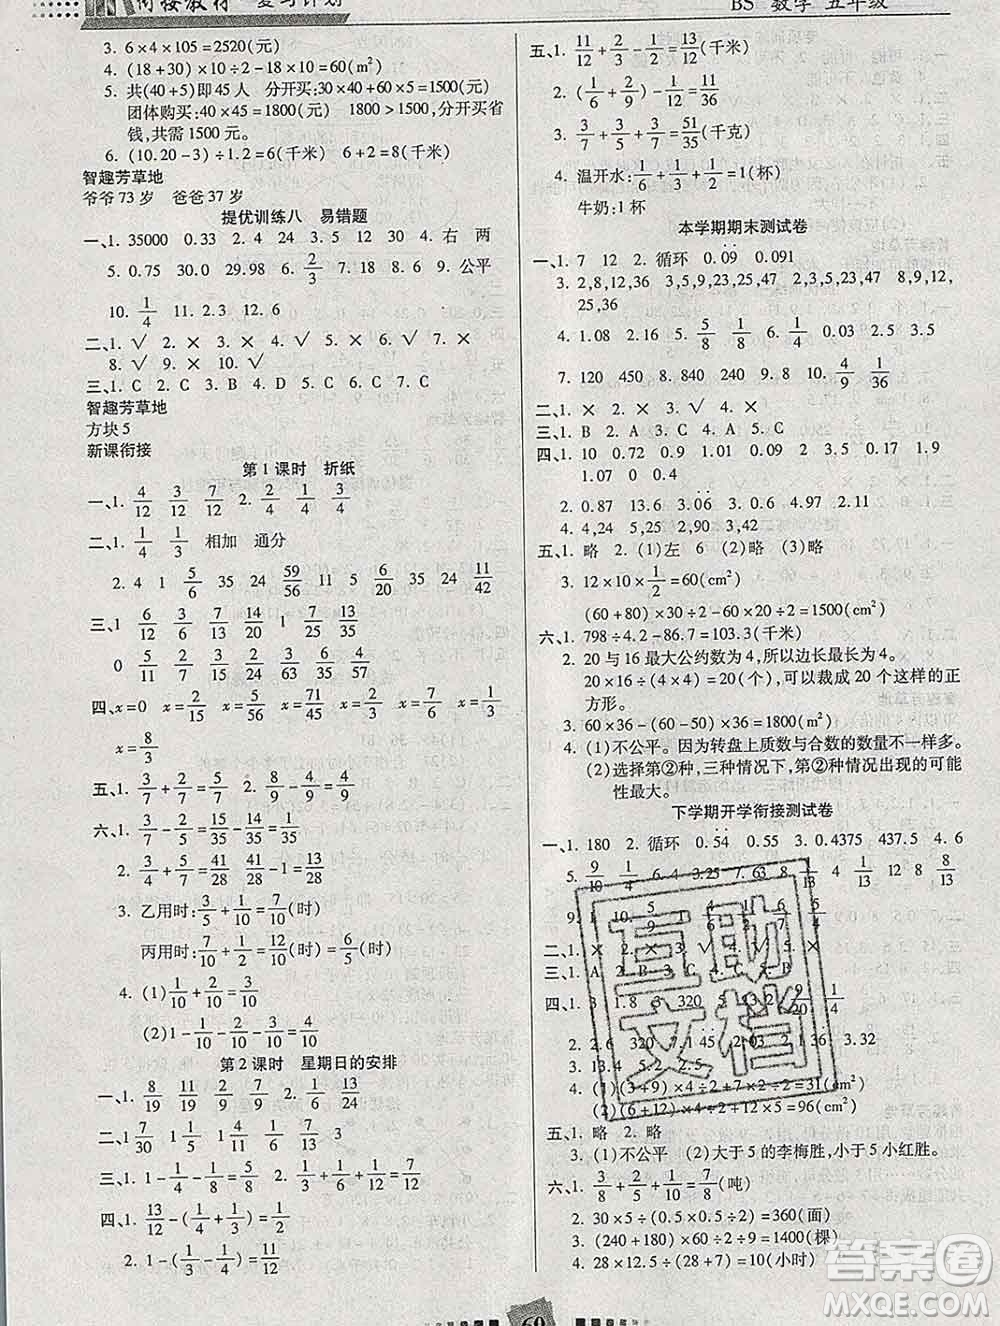 衔接教材 复习计划
BS 数学 五年级
3. 6×4×105=2520(元)
4. (18+30)×10÷2-18×10=60(m²)
5. 共(40+5)即45人 分开买:30×40+60×5=1500(元)
团体购买:40×45=1800(元) 1800>1500,分开买省
钱,共需1500元。
6. (10.20-3)÷1.2=6(千米) 6+2=8(千米)
智趣芳草地
爷爷73岁 爸爸37岁
提优训练八 易错题
一、1. 35000 0.33 2. 4 24 3. 5 12 30 4. 右 两
5. 0.75 30.0 29.98 6. 2/3 7. 18 8. 6 9. 公平
10. 1/4 11. 2.3 12. 6
二、1. √ 2. × 3. × 4. √ 5. √ 6. √ 7. ×
8. √ 9. × 10. √
三、1. C 2. C 3. B 4. D 5. C 6. B 7. C
智趣芳草地
方块5
新课衔接
第1课时 折纸
一、1. 4/12 3/12 7/12 2. 2/4 1/4 3/4
二、1. 1/4 1/3 相加 通分
2. 4 1 5/6 35 24 59/56 11 56 7/20 4 35 24 11/42
三、1 6/12 7/12 7/13 14/20 1 7/15 8/35
0 5/14 5/15 7/19 5/24 3/8 7/11 10/11
四、x=0 x=2/15 x=5/9 x=71/45 x=4/35 x=7/6 x=1/3
x=8/3
五、1. 3/7 + 2/7 = 5/7 2. 4/5 - 1/5 = 3/5
六、1. 3/7 + 2/5 = 15/35 + 14/35 = 29/35
2. 3/4 + 5/7 = 41/28 41/28 - 5/28 = 9/7
3. 乙用时: 3/5 + 1/10 = 7/10 (时)
丙用时: 7/10 + 1/2 = 12/10 = 6/5 (时)
4. (1) 1/10 + 2/10 = 3/10
(2) 1 - 1/10 - 2/10 = 7/10
第2课时 星期日的安排
一、1. 8/19 11/19 2/9 7/9 2. 1/6 13/24
二、1 7/30 1 1/15 1 1/8 1 1/3
三、1. 1 - 1/4 - 5/8 = 1/8 2. 3/8 + 1/4 + 1/8 = 3/4
四、1. 13/12 - (1/4 + 1/3) = 1/2
2. 1 - (1/4 - 1/6) = 11/12
五、1. 11/12 + 1/9 - 2/3 = 13/36 (千米)
2. (1/6 + 2/9) - 1/12 = 11/36
3. 3/7 + 3/7 + 3/5 = 51/35 (千克)
4. 温开水: 1/6 + 1/3 + 1/2 = 1(杯)
牛奶:1杯
本学期期末测试卷
一、1. 7 12 2. 循环 0.09 0.091
3. 2,8,16,36 3,5,9,15,23,25,47 2,3,5,23,47 8,9,12,
25,36
4. 1.08 2.16 5. 5/8 5/8 6. 1/4 0.03 2.5 3.5
7. 120 450 8. 840 240 9. 8 10. 4/9 1/36
二、1. × 2. × 3. × 4. √ 5. ×
三、1. B 2. A 3. C 4. A 5. C
四、1. 0.09 0.92 0.05 1 1.21 0.9 1.9
1 0.07 0 0.4
2. 0.87 13.6 3.06 3. 0.6 4.97 2.11
4. 4,24 5,25 2,90 1,24 9,45
五、1. 略 2. (1)左 6 (2)略 (3)略
3. 12×10×1/2=60(cm²)
(60+80)×30÷2-60×20÷2=1500(cm²)
六、1. 798÷4.2-86.7=103.3(千米)
2. 20与16最大公约数为4,所以边长最长为4。
20×16÷(4×4)=20(个),可以裁成20个这样的正
方形。
3. 60×36-(60-50)×36=1800(m²)
4. (1)不公平。因为转盘上质数与合数的数量不一样多。
(2)选择第②种,三种情况下,第②种情况出现的可能
性最大。
下学期开学衔接测试卷
一、1. 180 2. 循环 0.54 0.55 3. 0.4375 437.5 4. 6
二、1. × 2. × 3. × 4. √
2. 2.6
3. 13.4 5.2 2.5
4. (1)(2+6)×4÷2+7×2=31(cm²)
(2)(6+12)×4÷2+12×5=96(cm²)
五、1. 略 2. 略
3. (1)不公平 (2)大于5的李梅胜,小于5小红胜。
六、1. 3/8 + 2/5 + 1/10 = 7/8 (吨)
2. 30×5÷(0.5×0.5÷2)=360(面)
3. (240+180)×10÷2÷9=1400(棵)
4. 28×12.5÷(28+7)=10(小时)
互助
文档
69
答案圈
MXQE.COM